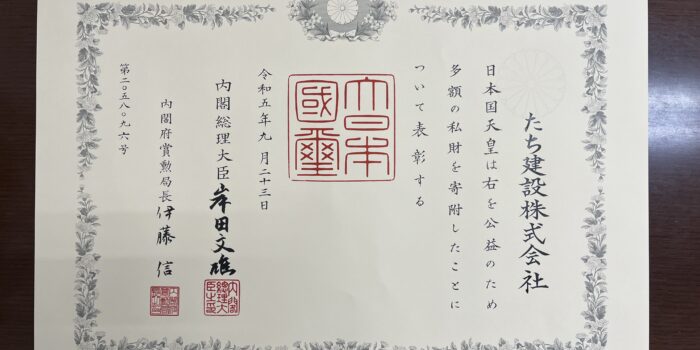 たち建設株式会社
日本国天皇は右を公益のため
多額の私財を寄附したことに
ついて表彰する
大日本
國璽
令和五年九月二十三日
内閣総理大臣 岸田文雄
内閣総理大臣之印
内閣府賞勲局長 伊藤 信
第二〇五八〇九六号